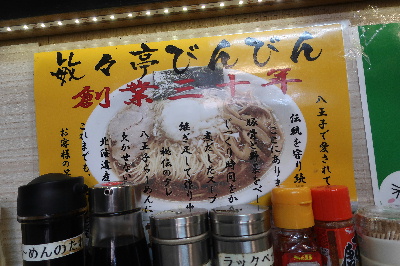 敳々亭びんびん
創業三十年
八王子で愛されて
伝統を守り続
ここにあります
豚骨と鮮魚ベー
じっくり時間をか
煮だしたスープ
継ぎ足して作り
秘伝のタレ
八王子らーめんに
欠かせ
北海道産
これまでも、
お客様の
ーめんのたれ
ラックペ